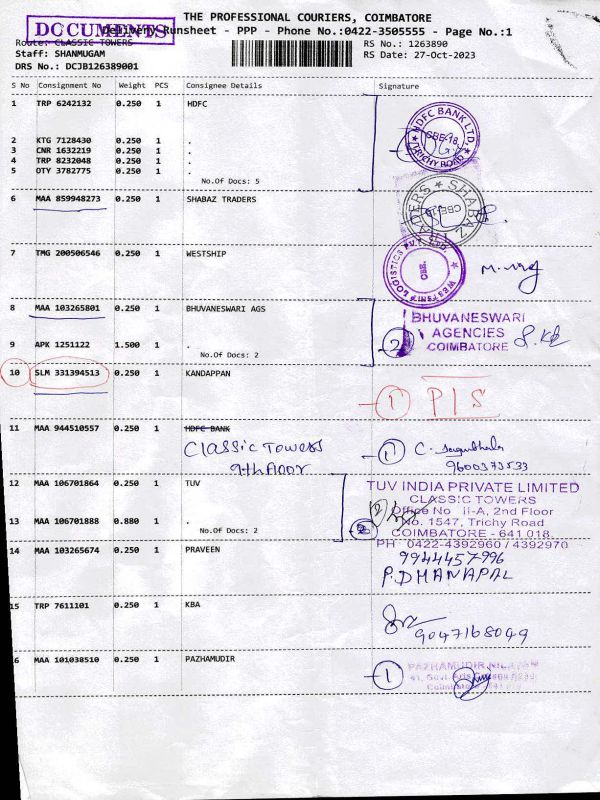 THE PROFESSIONAL COURIERS, COIMBATORE
DOCUMENTS
Delivery Runsheet - PPP - Phone No.:0422-3505555 - Page No.:1
Route: CLASSIC TOWERS
RS No.: 1263890
Staff: SHANMUGAM
RS Date: 27-Oct-2023
DRS No.: DCJB126389001
S No Consignment No Weight PCS Consignee Details Signature
1 TRP 6242132 0.250 1 HDFC
HDFC BANK LTD.
CBE-18
TRICHY ROAD
2 KTG 7128430 0.250 1 .
3 CNR 1632219 0.250 1 .
4 TRP 8232048 0.250 1 .
5 OTY 3782775 0.250 1 .
No.Of Docs: 5
6 MAA 859948273 0.250 1 SHABAZ TRADERS
SHABAZ
7 TMG 200506546 0.250 1 WESTSHIP
WESTSHIP LOGISTICS PVT. LTD.
CBE.
8 MAA 103265801 0.250 1 BHUVANESWARI AGS
BHUVANESWARI
AGENCIES
COIMBATORE
2
9 APK 1251122 1.500 1 .
No.Of Docs: 2
10 SLM 331394513 0.250 1 KANDAPPAN
1 P I S
11 MAA 944510557 0.250 1 HDFC BANK
Classic Towers
9th Floor
1
9600373533
12 MAA 106701864 0.250 1 TUV
TUV INDIA PRIVATE LIMITED
CLASSIC TOWERS
Office No II-A, 2nd Floor
No. 1547, Trichy Road
COIMBATORE - 641 018.
PH : 0422-4392960 / 4392970
13 MAA 106701888 0.880 1 .
No.Of Docs: 2
14 MAA 103265674 0.250 1 PRAVEEN
9944457996
P.DHANAPAL
15 TRP 7611101 0.250 1 KBA
9047168049
6 MAA 101038510 0.250 1 PAZHAMUDIR
1
PAZHAMUDIR NILAYAM